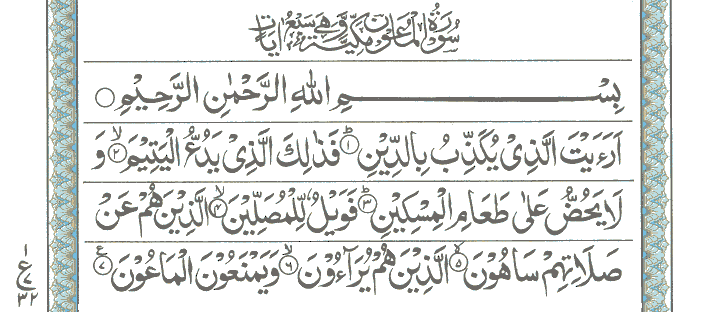 سُوْرَةُ الْمَاعُوْنِ مَكِّيَّةٌ وَّهِيَ سَبْعُ اٰيَاتٍ
بِسْمِ اللّٰهِ الرَّحْمٰنِ الرَّحِيْمِ ○
اَرَءَيْتَ الَّذِيْ يُكَذِّبُ بِالدِّيْنِ ؕ﴿۱﴾ فَذٰلِكَ الَّذِيْ يَدُعُّ الْيَتِيْمَ ۙ﴿۲﴾ وَ
لَا يَحُضُّ عَلٰى طَعَامِ الْمِسْكِيْنِ ؕ﴿۳﴾ فَوَيْلٌ لِّلْمُصَلِّيْنَ ۙ﴿۴﴾ الَّذِيْنَ هُمْ عَنْ
صَلَاتِهِمْ سَاهُوْنَ ۙ﴿۵﴾ الَّذِيْنَ هُمْ يُرَآءُوْنَ ۙ﴿۶﴾ وَيَمْنَعُوْنَ الْمَاعُوْنَ ﴿۷﴾ع
۱
ع ۷
۳۲